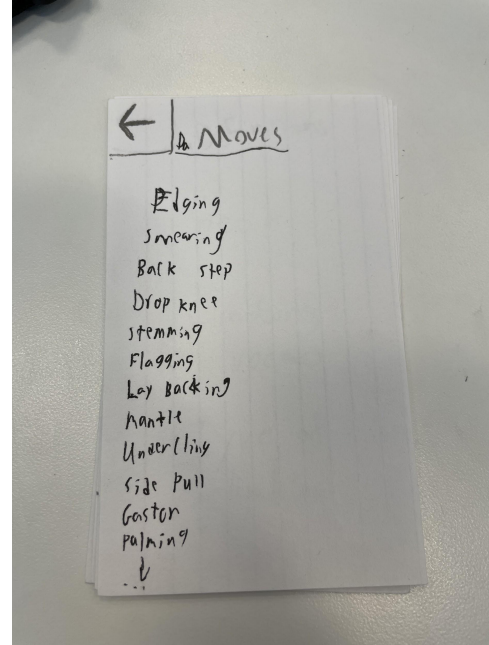 Moves
Edging
smearing
Back step
Drop knee
stemming
Flagging
Lay Backing
Mantle
Undercling
side Pull
Gaston
palming
...